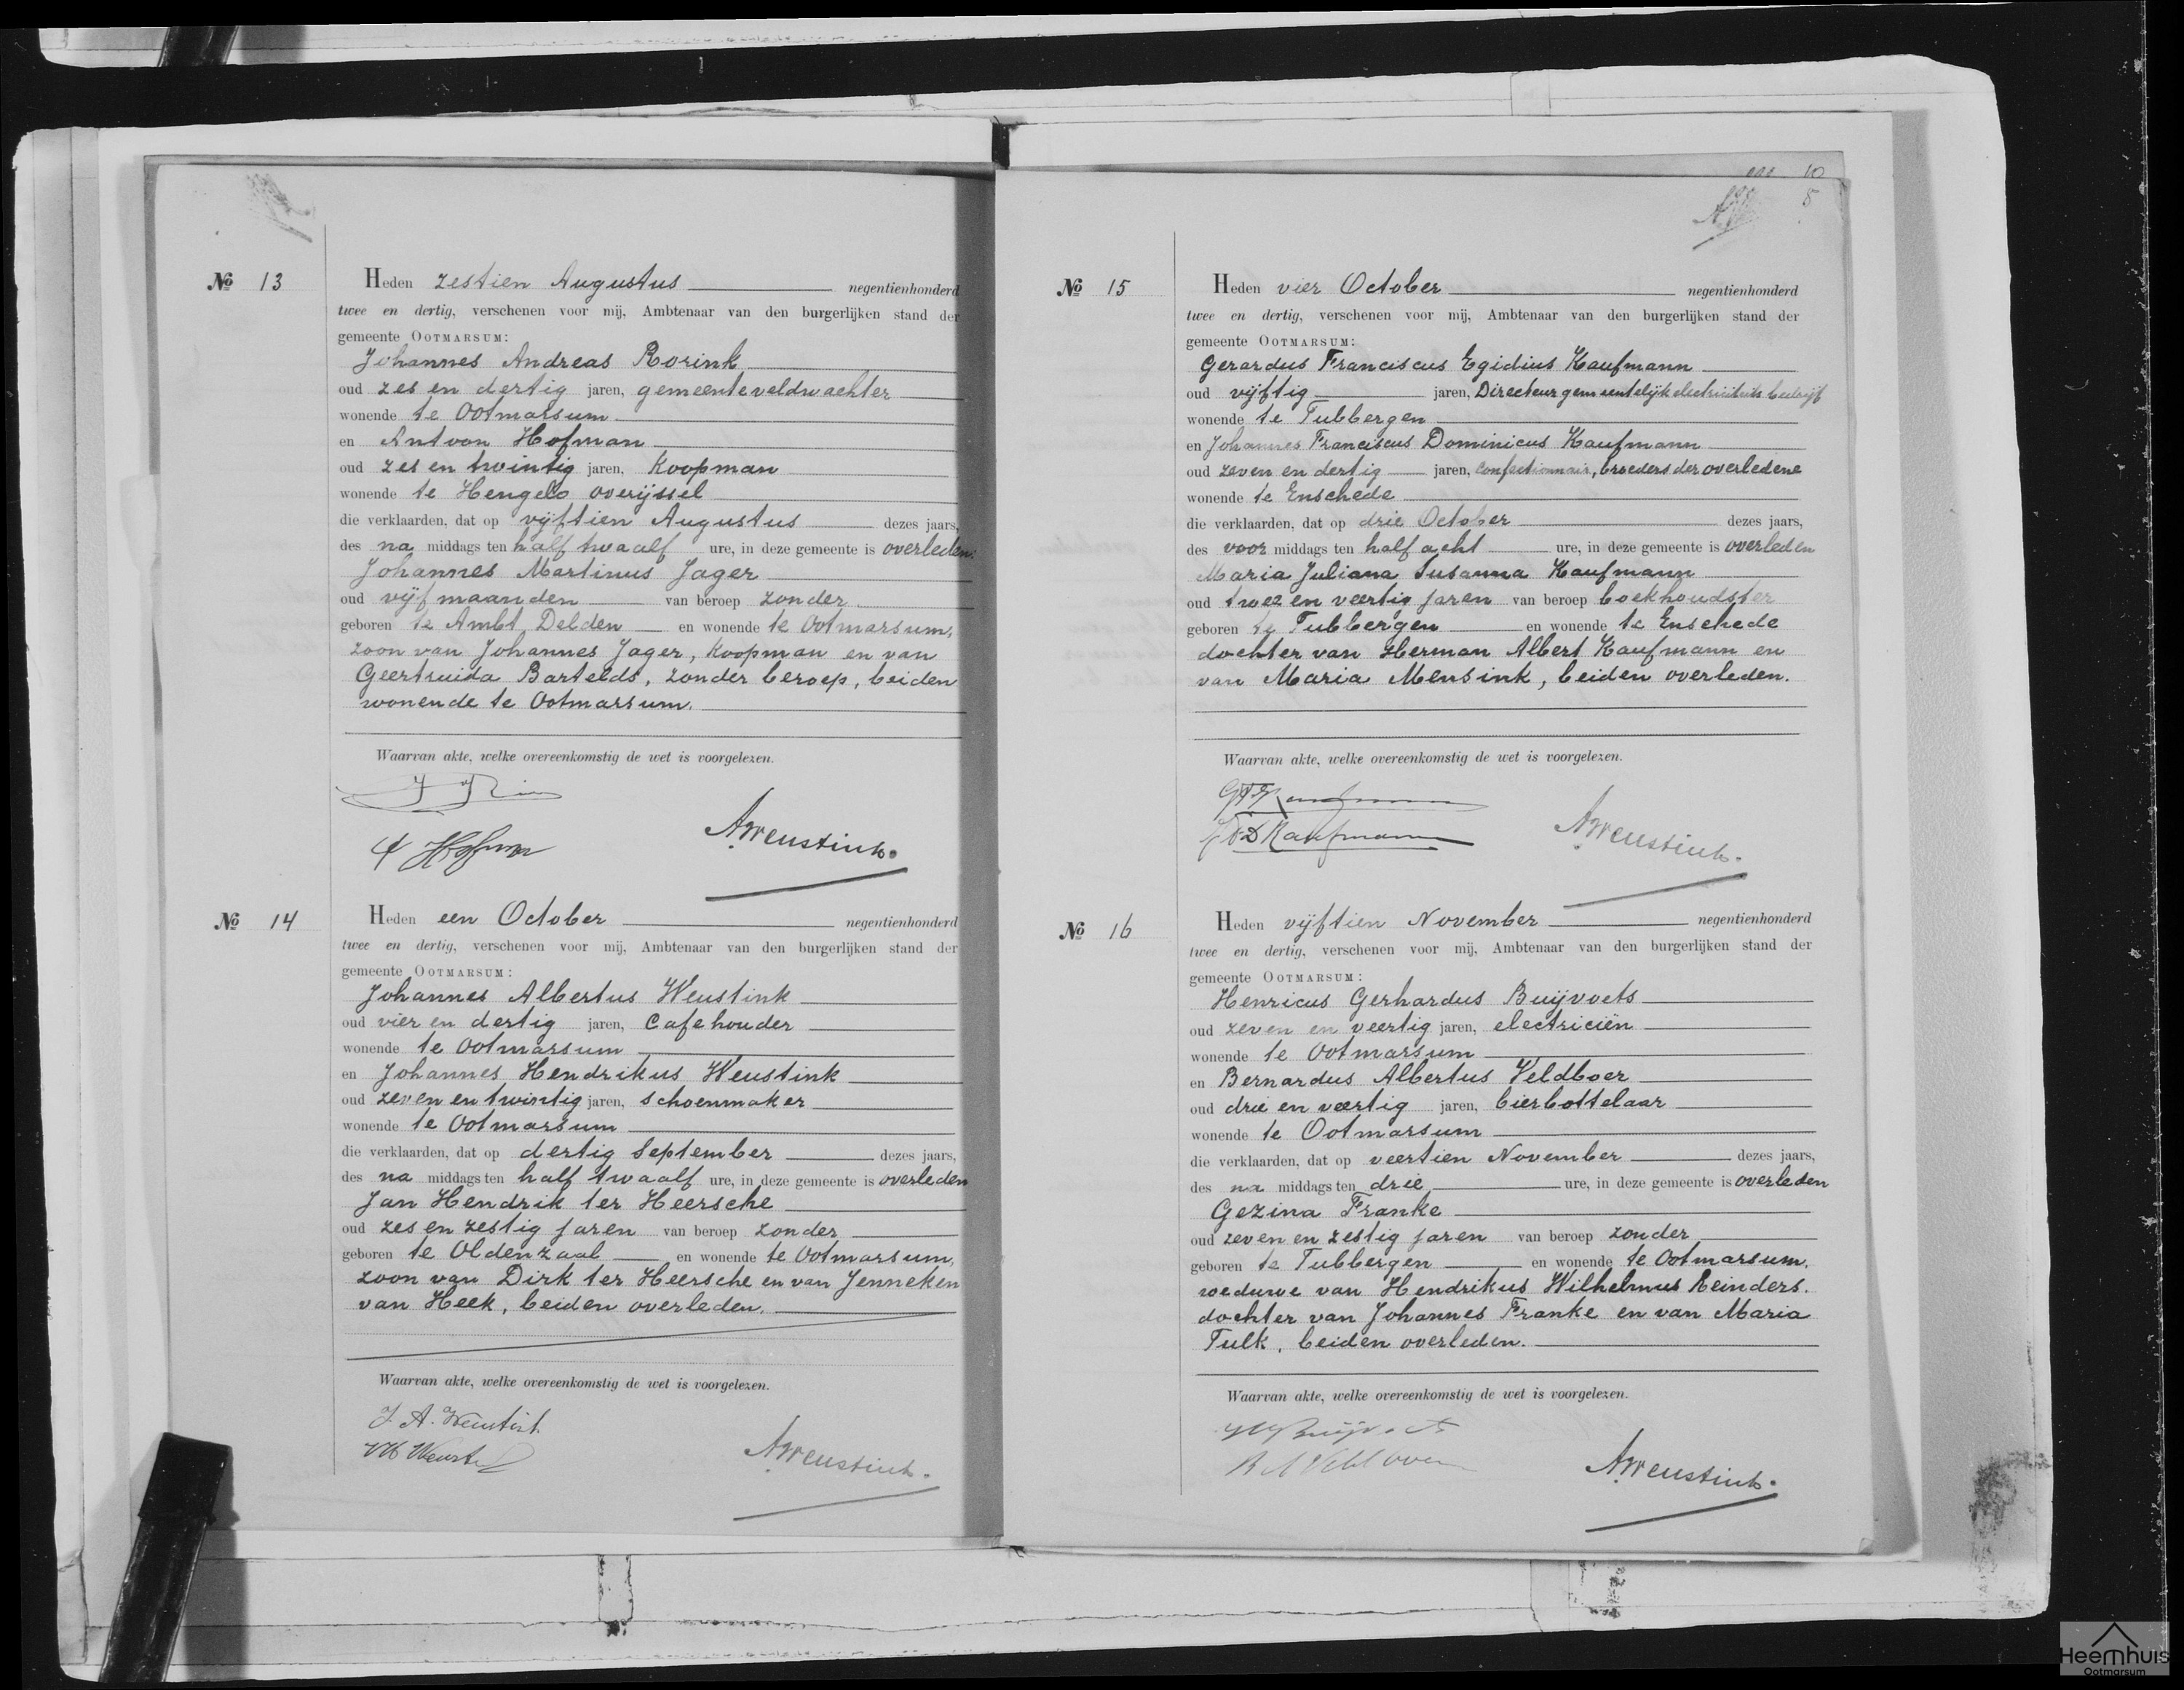 No 13
Heden zestien Augustus negentienhonderd
twee en dertig, verschenen voor mij, Ambtenaar van den burgerlijken stand der
gemeente OOTMARSUM:
Johannes Andreas Rorink
oud zes en dertig jaren, gemeenteveldwachter
wonende te Ootmarsum
en Antoon Hofman
oud zes en twintig jaren, Koopman
wonende te Hengelo overijssel
die verklaarden, dat op vijftien Augustus dezes jaars,
des na middags ten half twaalf ure, in deze gemeente is overleden:
Johannes Martinus Jager
oud vijf maanden van beroep zonder
geboren te Ambt Delden en wonende te Ootmarsum,
zoon van Johannes Jager, Koopman en van
Geertruida Bartelds, zonder beroep, beiden
wonende te Ootmarsum.
Waarvan akte, welke overeenkomstig de wet is voorgelezen.
AWeustink.
No 14
Heden een October negentienhonderd
twee en dertig, verschenen voor mij, Ambtenaar van den burgerlijken stand der
gemeente OOTMARSUM:
Johannes Albertus Weustink
oud vier en dertig jaren, Cafehouder
wonende te Ootmarsum
en Johannes Hendrikus Weustink
oud zeven en twintig jaren, schoenmaker
wonende te Ootmarsum
die verklaarden, dat op dertig September dezes jaars,
des na middags ten half twaalf ure, in deze gemeente is overleden
Jan Hendrik ter Heersche
oud zes en zestig jaren van beroep zonder
geboren te Oldenzaal en wonende te Ootmarsum,
zoon van Dirk ter Heersche en van Jenneken
van Heek, beiden overleden.
Waarvan akte, welke overeenkomstig de wet is voorgelezen.
J. A. Weustink
AWeustink.
10
8
No 15
Heden vier October negentienhonderd
twee en dertig, verschenen voor mij, Ambtenaar van den burgerlijken stand der
gemeente OOTMARSUM:
Gerardus Franciscus Egidius Kaufmann
oud vijftig jaren, Directeur gemeentelijk electriciteits bedrijf
wonende te Tubbergen
en Johannes Franciscus Dominicus Kaufmann
oud zeven en dertig jaren, confectionnair, broeders der overledene
wonende te Enschede
die verklaarden, dat op drie October dezes jaars,
des voor middags ten half acht ure, in deze gemeente is overleden
Maria Juliana Susanna Kaufmann
oud twee en veertig jaren van beroep boekhoudster
geboren te Tubbergen en wonende te Enschede
dochter van Herman Albert Kaufmann en
van Maria Mensink, beiden overleden.
Waarvan akte, welke overeenkomstig de wet is voorgelezen.
JFD Kaufmann
AWeustink.
No 16
Heden vijftien November negentienhonderd
twee en dertig, verschenen voor mij, Ambtenaar van den burgerlijken stand der
gemeente OOTMARSUM:
Henricus Gerhardus Buijvoets
oud zeven en veertig jaren, electriciën
wonende te Ootmarsum
en Bernardus Albertus Veldboer
oud drie en veertig jaren, bierbottelaar
wonende te Ootmarsum
die verklaarden, dat op veertien November dezes jaars,
des na middags ten drie ure, in deze gemeente is overleden
Gezina Franke
oud zeven en zestig jaren van beroep zonder
geboren te Tubbergen en wonende te Ootmarsum,
weduwe van Hendrikus Wilhelmus Reinders.
dochter van Johannes Franke en van Maria
Tulk, beiden overleden.
Waarvan akte, welke overeenkomstig de wet is voorgelezen.
HG Buijvoets
B A Veldboer
AWeustink.
Heemhuis
Ootmarsum